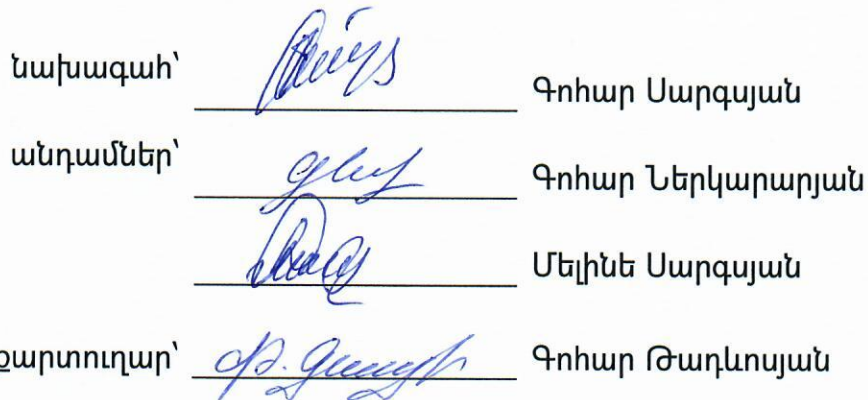 նախագահ՝ Գոհար Սարգսյան
անդամներ՝ Գոհար Ներկարարյան
Մելինե Սարգսյան
քարտուղար՝ Գոհար Թադևոսյան